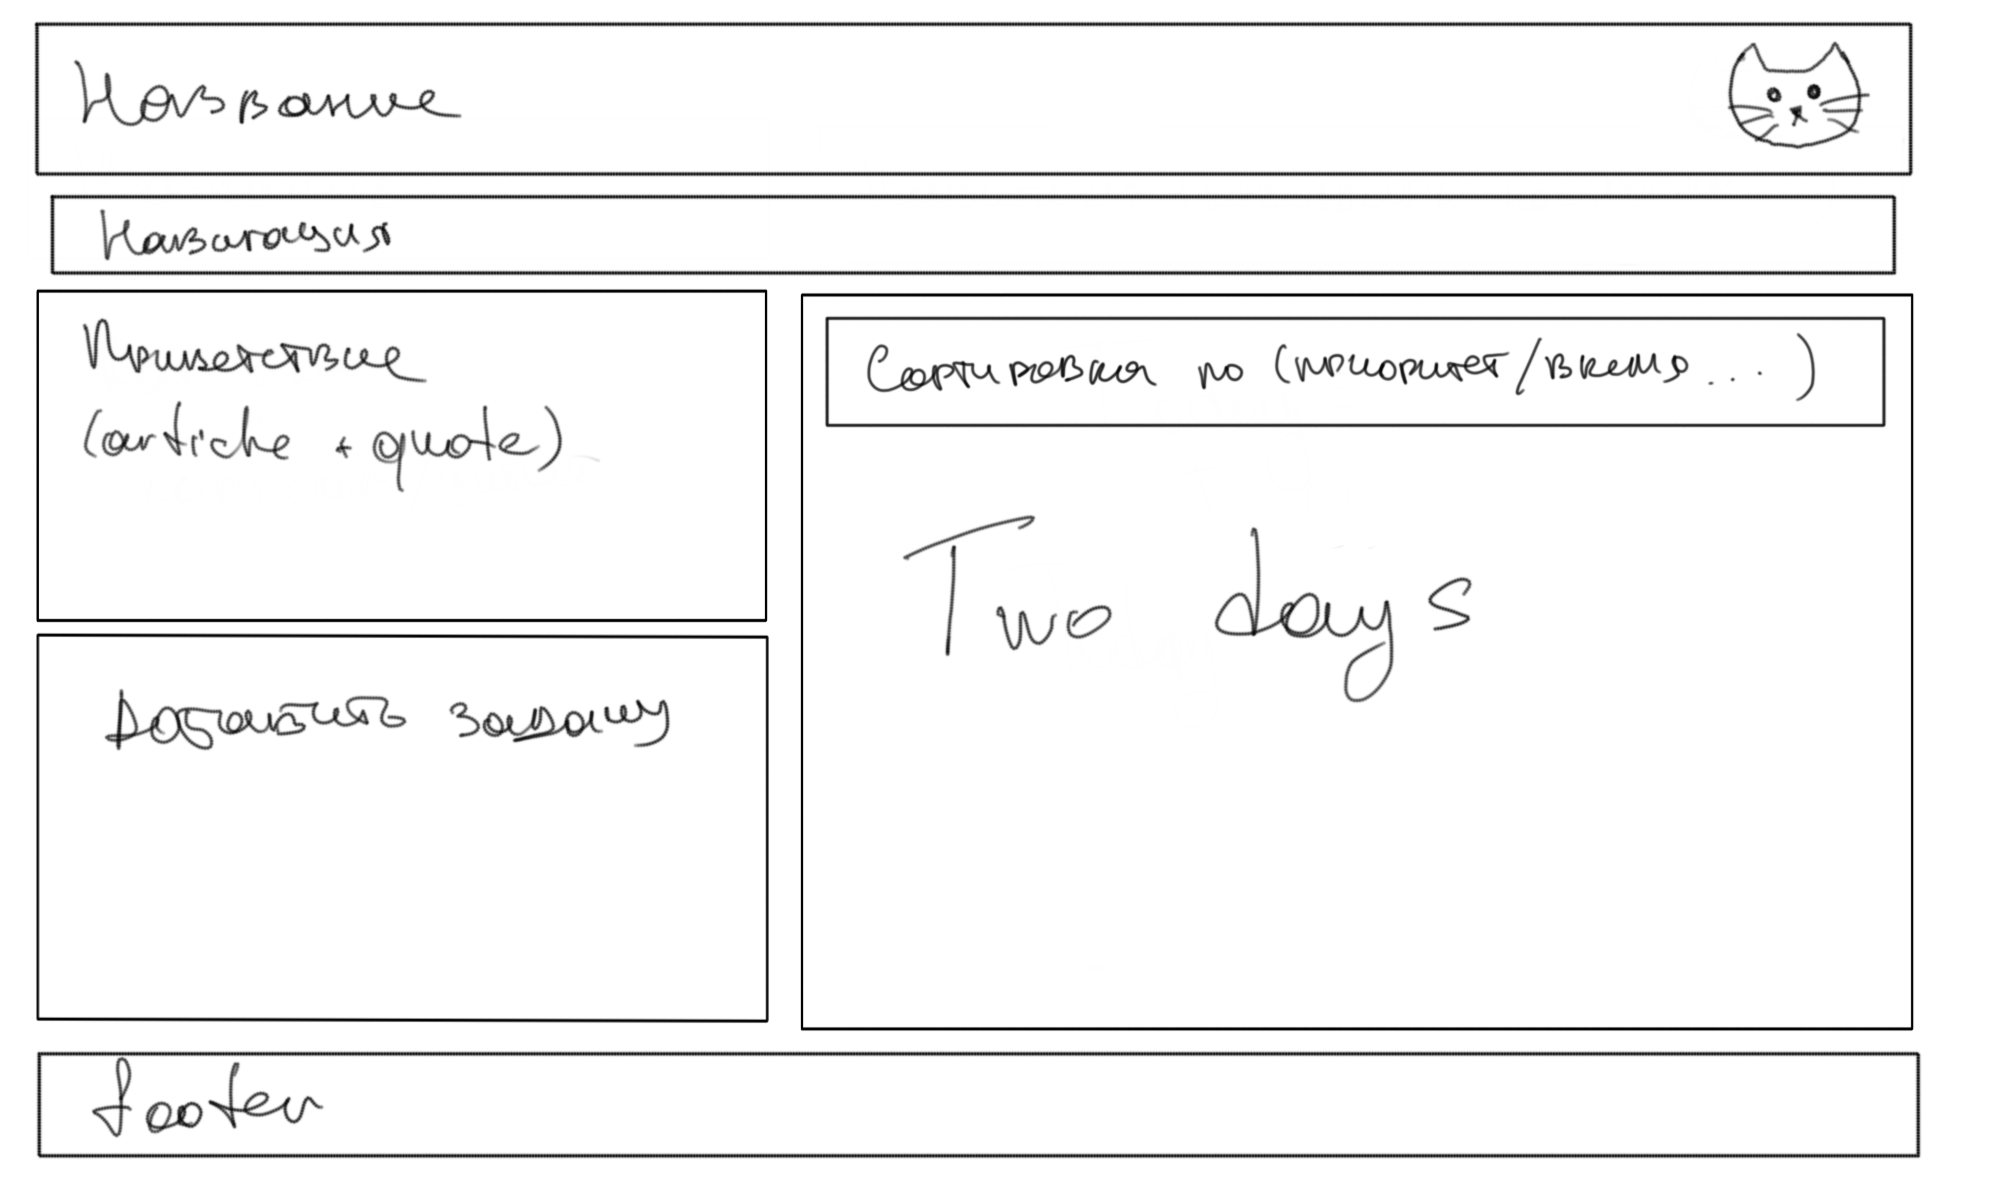 Название
Навигация
Приветствие
(article + quote)
Добавить задачу
Сортировка по (приоритет/время...)
Two days
footer